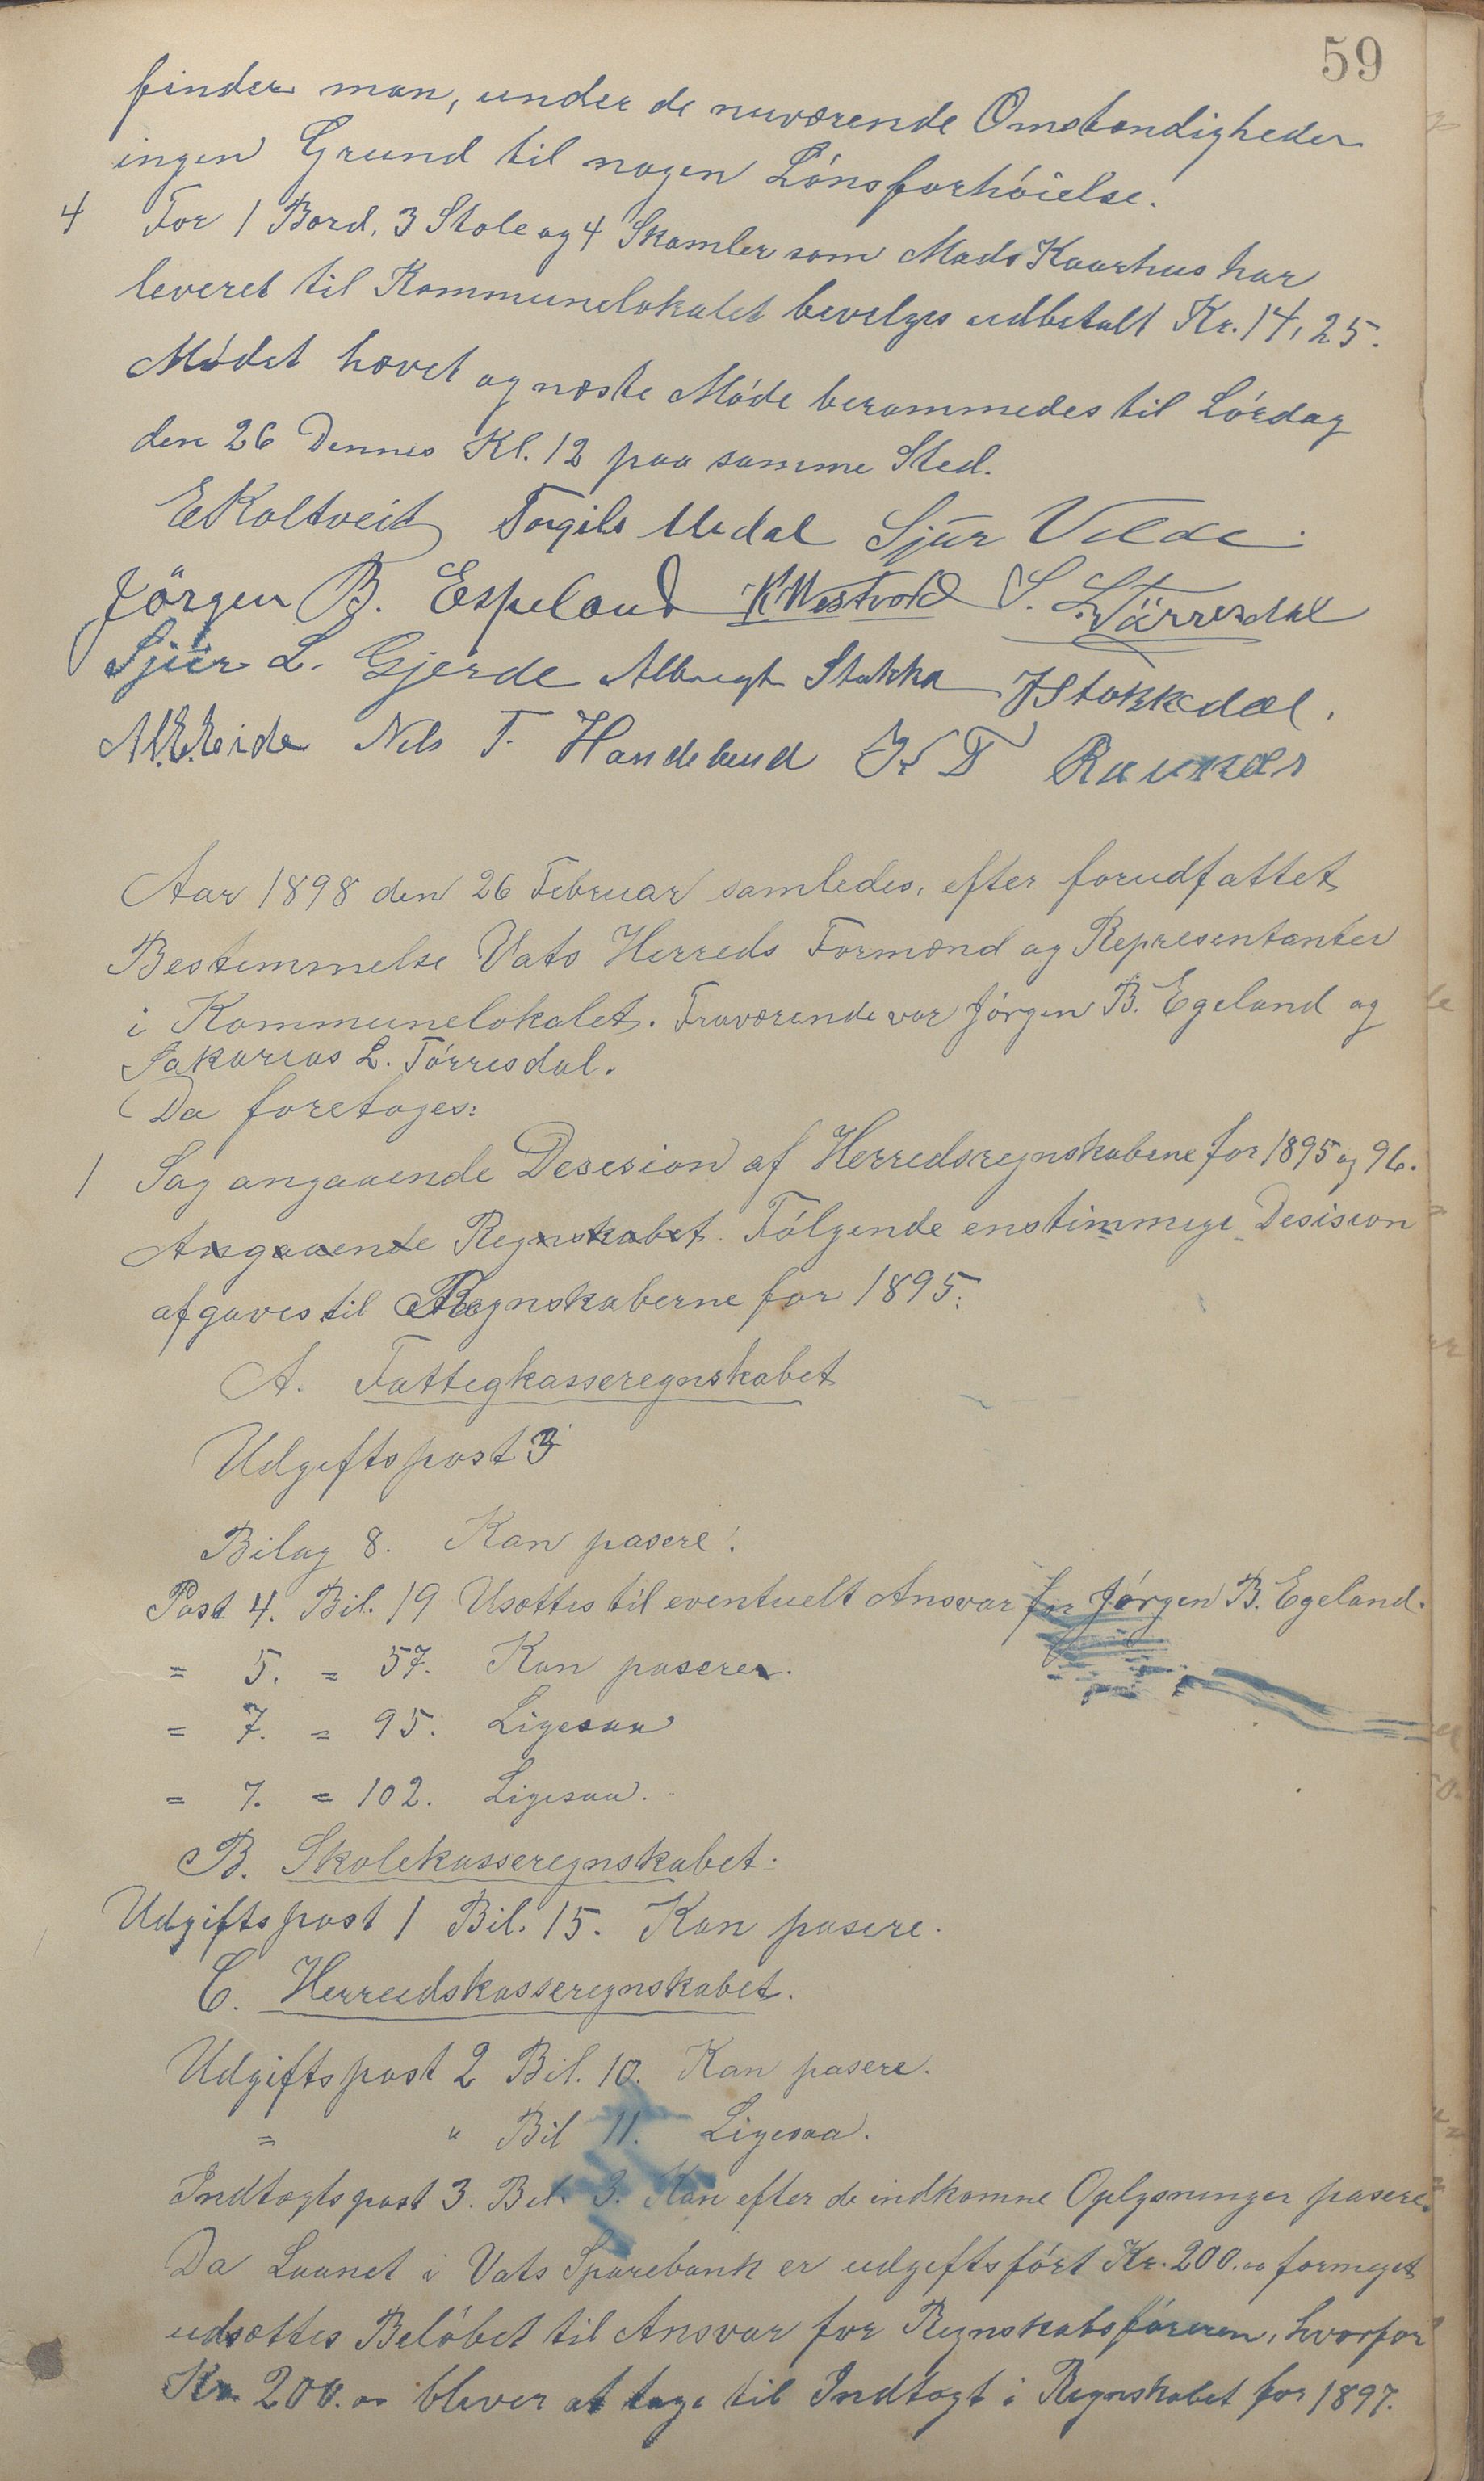 59
finder man, under de nuværende Omstændigheder
ingen Grund til nogen Lønsforhøielse.
4 For 1 Bord, 3 Stole og 4 Skamler som Mads Kaarhus har
leveret til Kommunelokalet bevelges udbetalt Kr. 14,25.
Mødet hævet og næste Møde berammedes til Lørdag
den 26 Dennes Kl. 12 paa samme Sted.
E Koltveit Torgils Medal Sjur Velde.
Jörgen B. Espeland K Westvold S. L. Tärresdal
Sjur L. Gjerde Albregt Stakka J Stokkedal.
M. E. Eide Nils T. Handeland K T Raunæs
Aar 1898 den 26 Februar samledes, efter forudfattet
Bestemmelse Vats Herreds Formænd og Representanter
i Kommunelokalet. Fraværende var Jørgen B. Egeland og
Sakarias L. Tørresdal.
Da foretoges:
1 Sag angaaende Desesion af Herredsregnskabene for 1895 og 96.
Angaaende Regnskabet. Følgende enstimmige Desision
afgaves til Regnskaberne for 1895:
A. Fattegkasseregnskabet
Udgiftspost 3
Bilag 8. Kan pasere.
Post 4. Bil. 19 Usættes til eventuelt Ansvar for Jørgen B. Egeland.
= 5. = 57. Kan paserer.
= 7. = 95. Ligesaa
= 7. = 102. Ligesaa.
B. Skolekasseregnskabet.
Udgiftspost 1 Bil. 15. Kan pasere.
C. Herredskasseregnskabet.
Udgiftspost 2 Bil. 10. Kan pasere.
= " Bil 11. Ligesaa.
Indtægtspost 3. Bil. 3. Kan efter de indkomne Oplysninger pasere.
Da Laanet i Vats Sparebank er udgiftsført Kr. 200.00 formeget
udsættes Beløbet til Ansvar for Regnskabsføreren, hvorfor
Kr. 200.00 bliver at tage til Indtægt i Regnskabet for 1897.